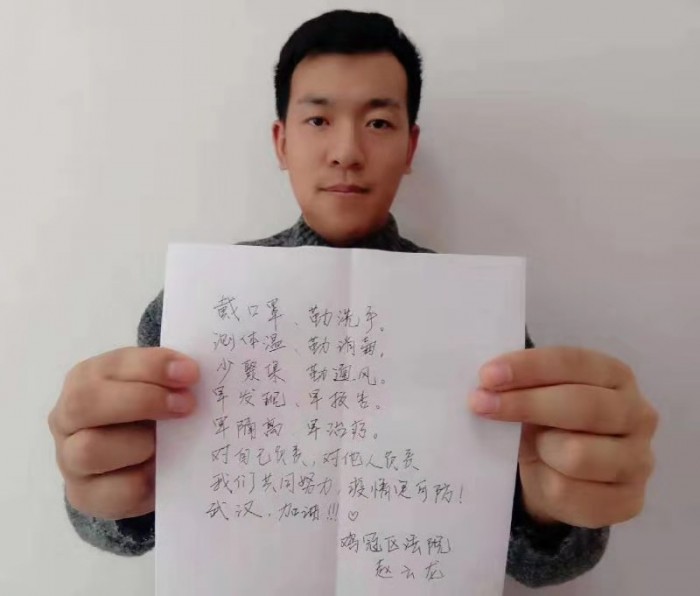 戴口罩、勤洗手。
测体温、勤消毒。
少聚集 勤通风。
早发现、早报告。
早隔离、早治疗。
对自己负责,对他人负责
我们共同努力,疫情定可防!
武汉,加油!!! ♡
鸡冠区法院
赵云龙